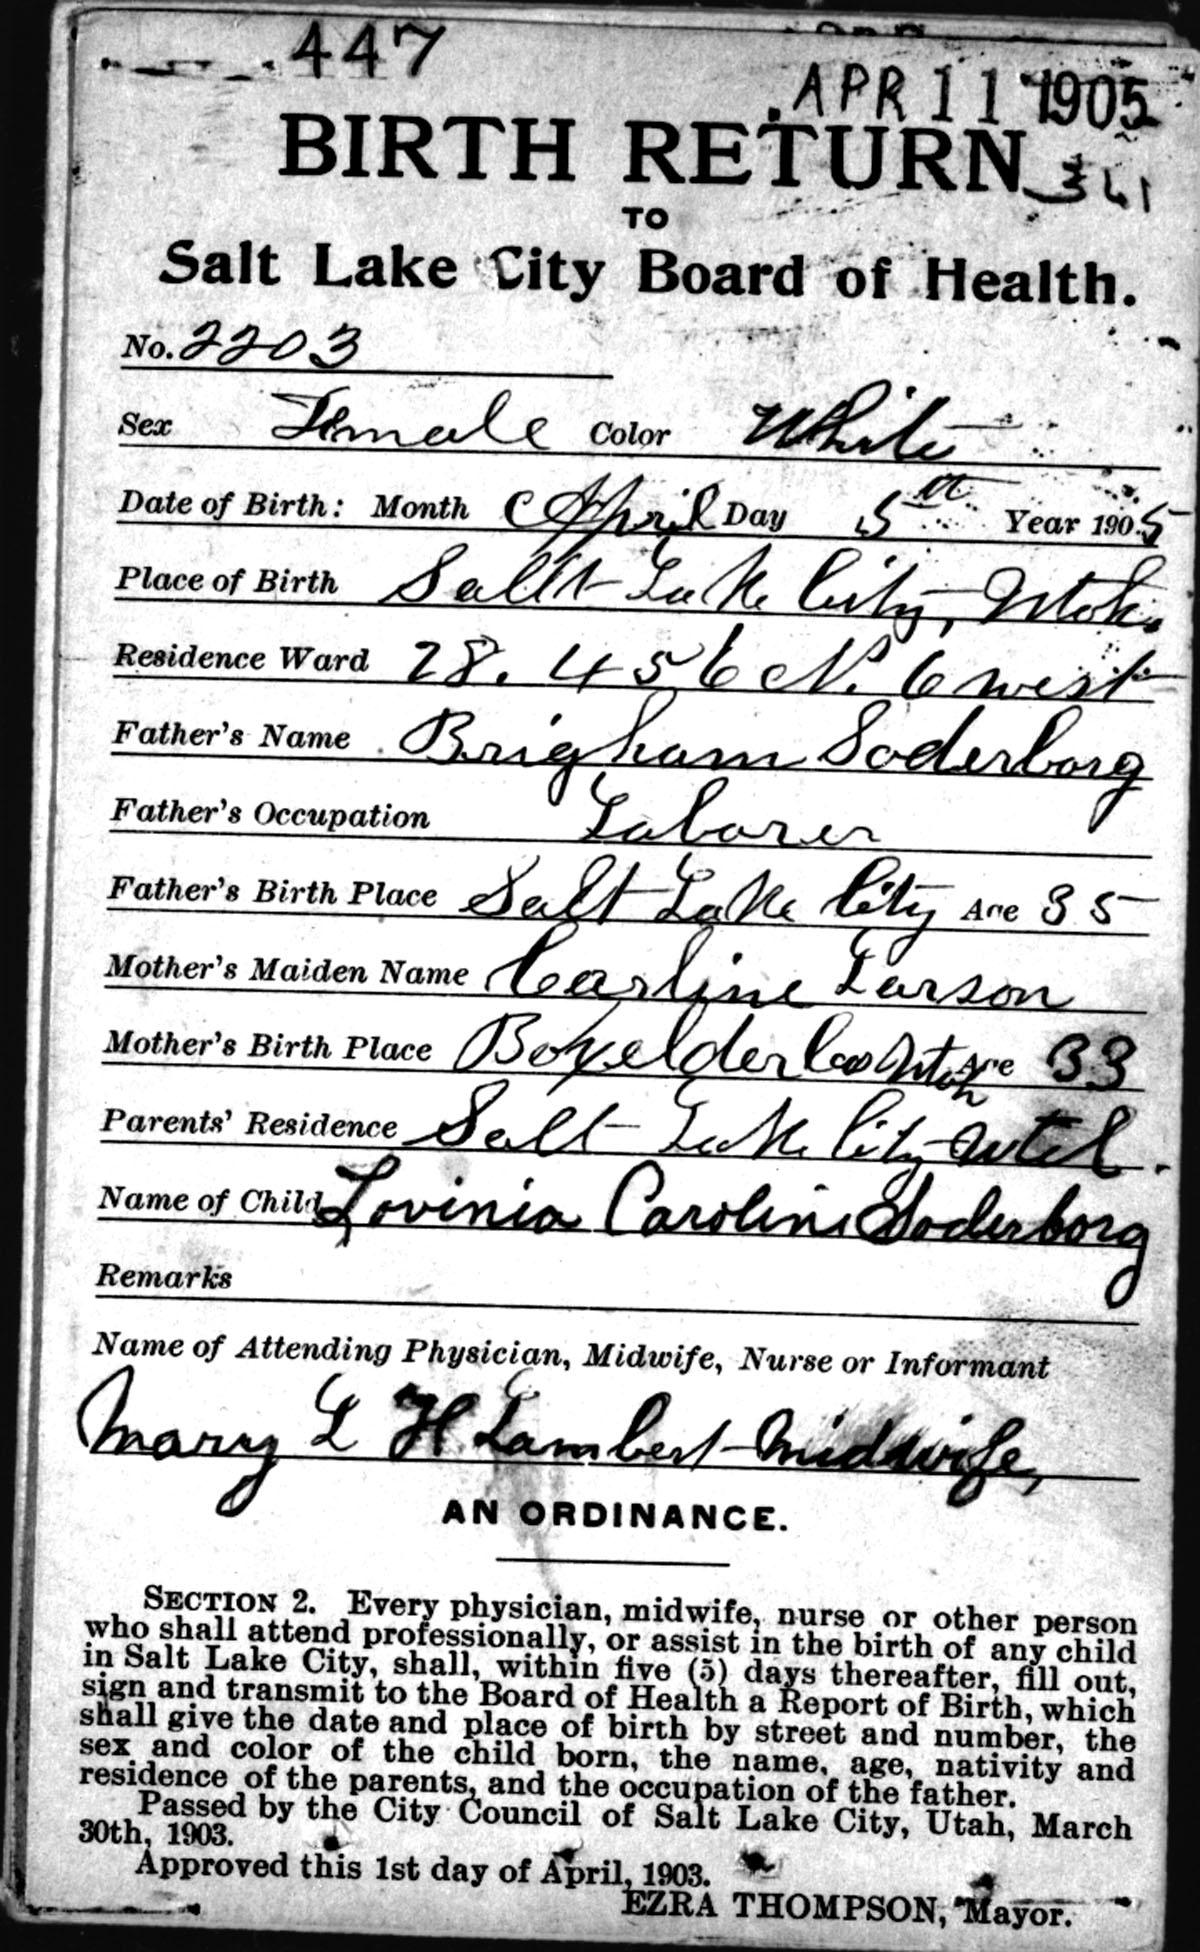 447
APR 11 1905
BIRTH RETURN
361
TO
Salt Lake City Board of Health.
No. 2203
Sex Female Color White
Date of Birth: Month April Day 5th Year 1905
Place of Birth Salt Lake City, Utah.
Residence Ward 28. 456 N. 6 west
Father's Name Brigham Soderborg
Father's Occupation Laborer
Father's Birth Place Salt Lake City Age 35
Mother's Maiden Name Carline Larson
Mother's Birth Place Boxelder Co Utah Age 33
Parents' Residence Salt Lake City Utah.
Name of Child Lovinia Caroline Soderborg
Remarks
Name of Attending Physician, Midwife, Nurse or Informant
Mary L H Lambert Midwife,
AN ORDINANCE.
SECTION 2. Every physician, midwife, nurse or other person
who shall attend professionally, or assist in the birth of any child
in Salt Lake City, shall, within five (5) days thereafter, fill out,
sign and transmit to the Board of Health a Report of Birth, which
shall give the date and place of birth by street and number, the
sex and color of the child born, the name, age, nativity and
residence of the parents, and the occupation of the father.
Passed by the City Council of Salt Lake City, Utah, March
30th, 1903.
Approved this 1st day of April, 1903.
EZRA THOMPSON, Mayor.